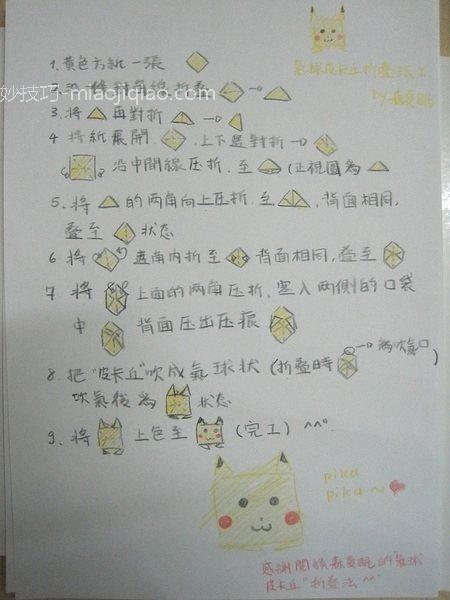 氣球皮卡丘折疊法
by 森夏眠
1. 黃色方紙一張
妙技巧-miaojiqiao.com
2. 沿對角線折疊
3. 將 再對折
4 將紙展開 上下邊對折
沿中間線壓折,至 (正視圖為
5. 將 的两角向上压折.至 ,背面相同,
疊至 状态
6 將 邊角内折至 背面相同,疊至
7 將 上面的两角压折,塞入两側的口袋
中 背面压出压痕
8. 把"皮卡丘"吹成氣球狀(折疊時 為吹氣口)
吹氣後為 狀态
9、將 上色至 (完工) ^^"
pika
pika~
感謝閱讀森夏眠的"氣球
皮卡丘"折疊法^^